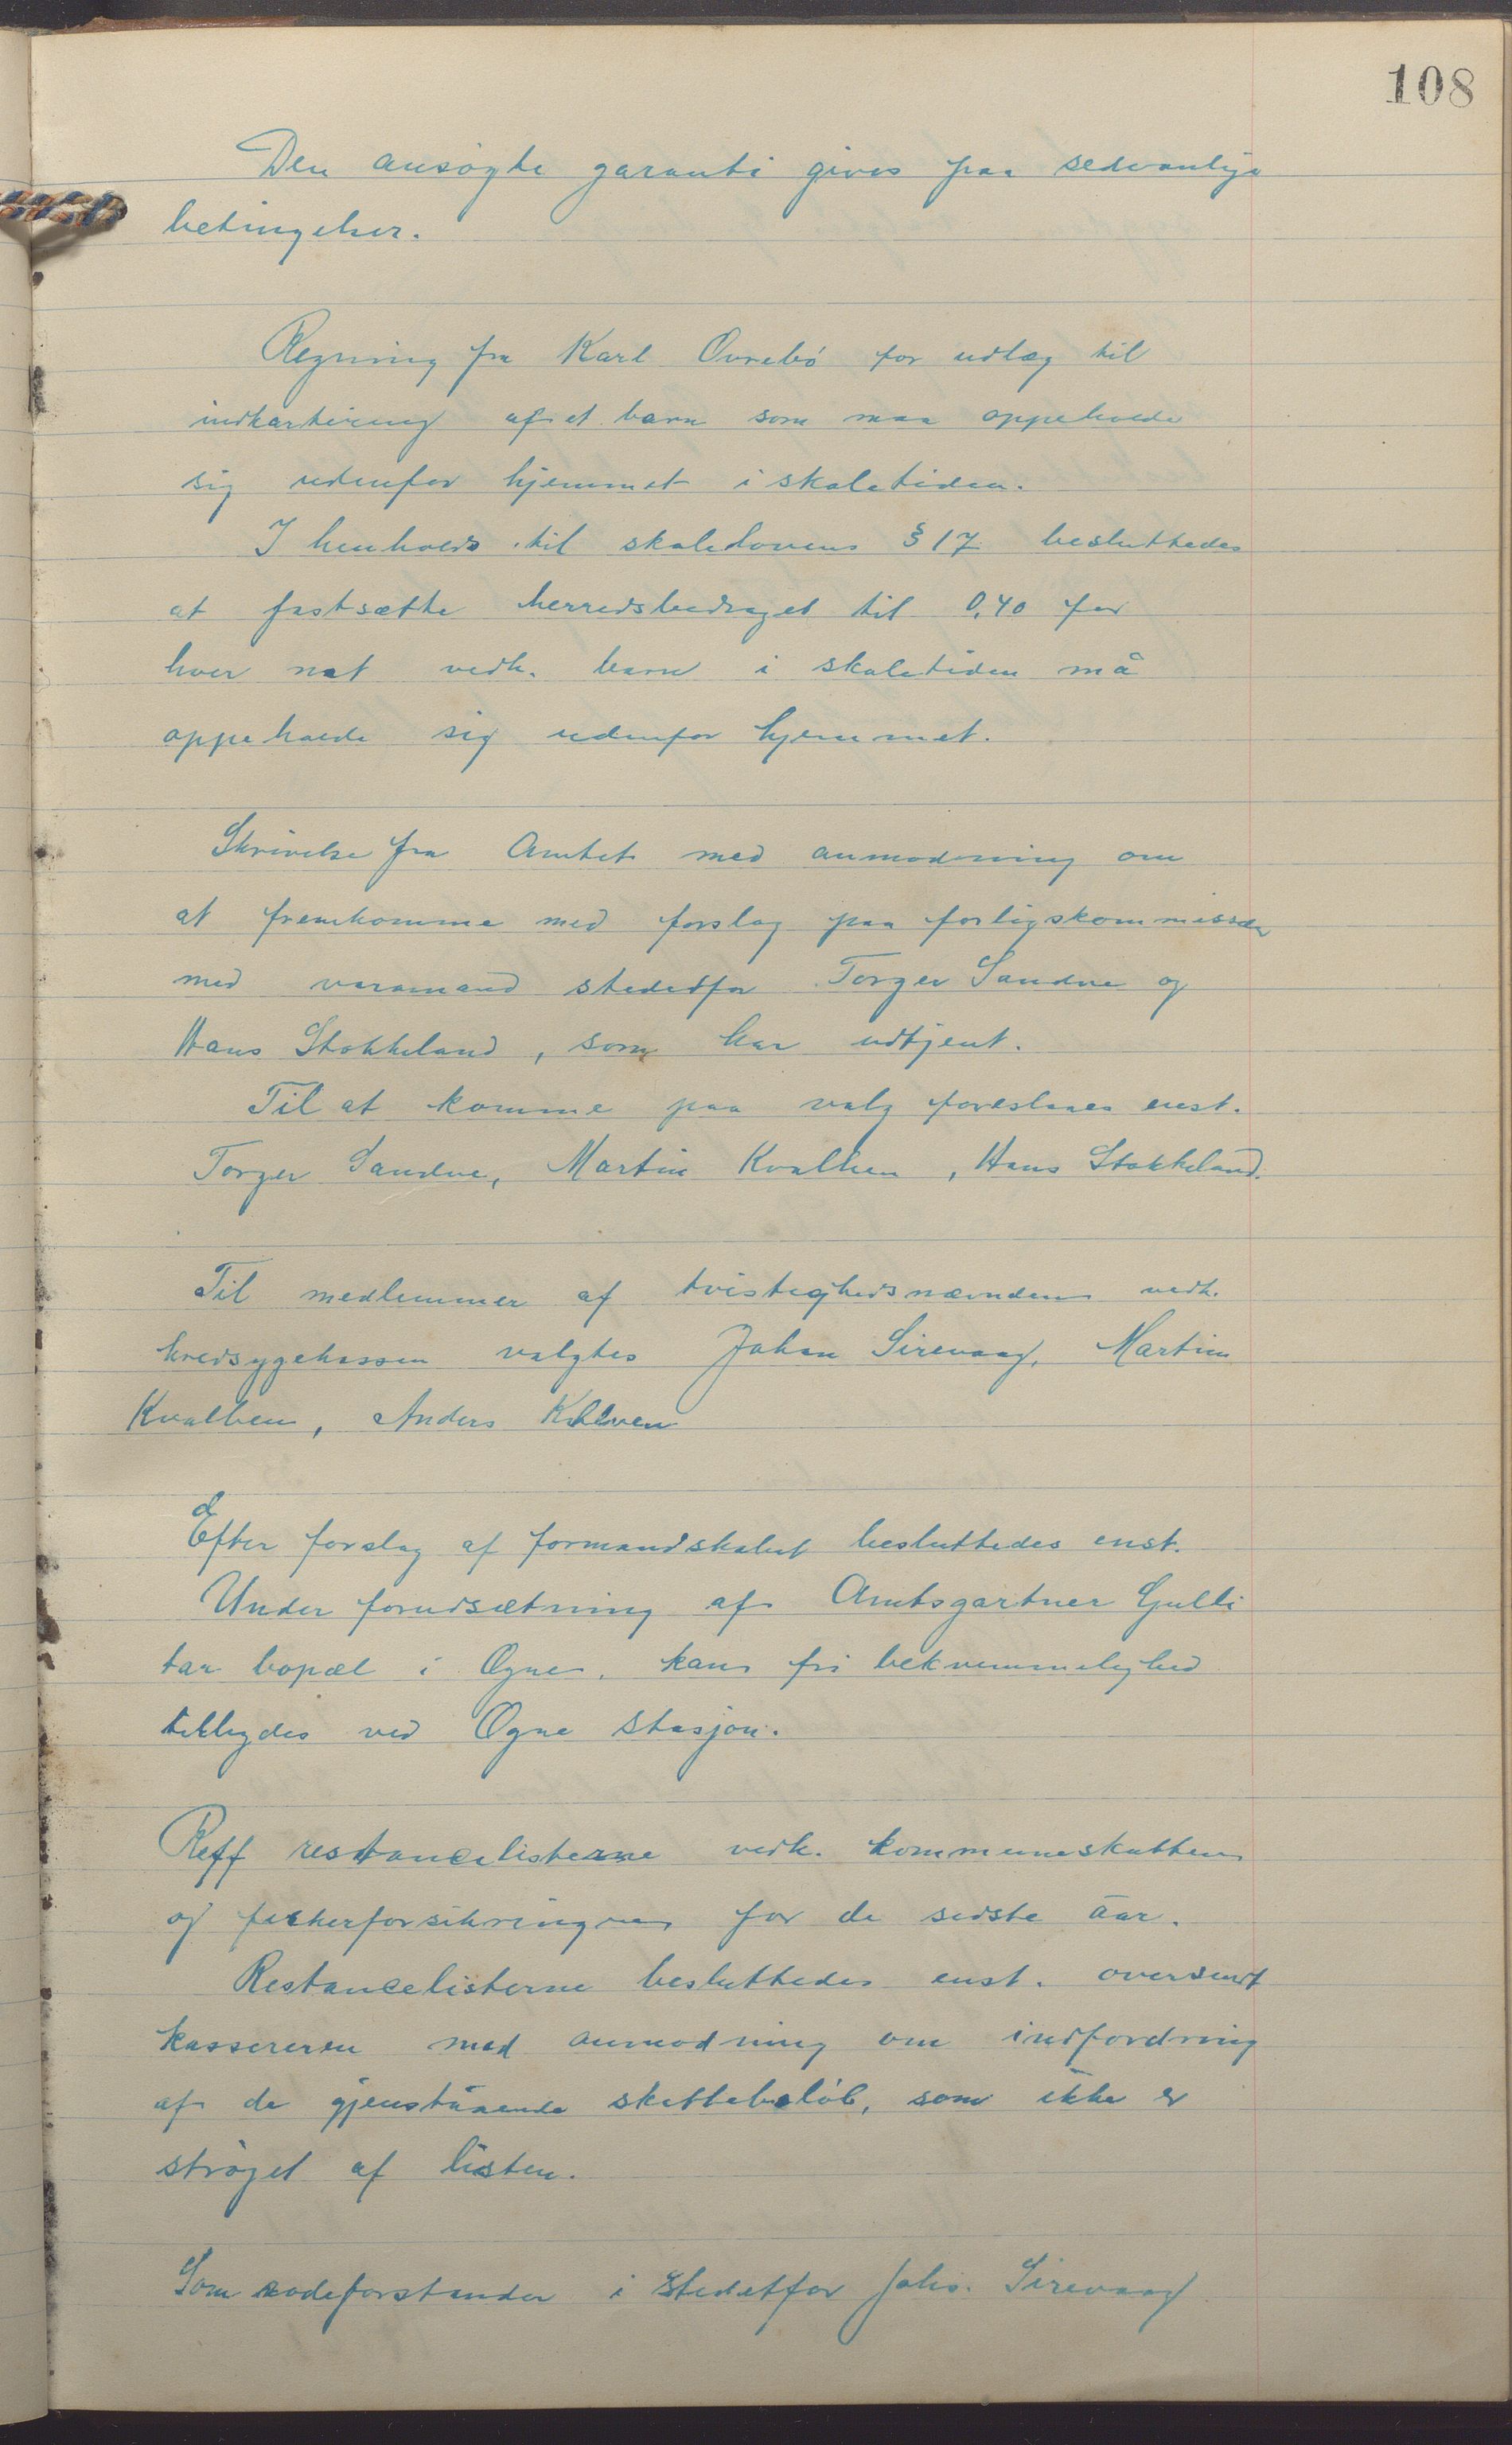 108
Den ansøgte garanti gives paa sedvanlige
betingelser.
Regning fra Karl Ovrebö for udlæg til
indkvartering af et barn som maa oppeholde
sig udenfor hjemmet i skoletiden.
I henhold til skolelovens § 17 besluttedes
at fastsætte herredsbidraget til 0,40 for
hver nat vedk. barn i skoletiden må
oppeholde sig udenfor hjemmet.
Skrivelse fra Amtet med anmodning om
at fremkomme med forslag paa forligskommissær
med varamand stedetfor Torger Sandve og
Hans Stokkeland, som har udtjent.
Til at komme paa valg foreslaaes enst.
Torger Sandve, Martin Kvalben, Hans Stokkeland.
Til medlemmer af tvistighedsnævnden vedk.
kredssygekassen valgtes Johan Sirevaag, Martin
Kvalben, Anders
Efter forslag af formandskabet besluttedes enst.
Under forudsætning af Amtsgartner Gulli
tar bopæl i Ogne, kan fri bekvemmelighed
tilbydes ved Ogne stasjon.
Reff restancelisterne vedk. kommuneskatten
og fiskerforsikringen for de sidste aar.
Restancelisterne besluttedes enst. oversendt
kassereren med anmodning om indfordring
af de gjenstaaende skattebeløb, som ikke er
strøget af listen.
Som rodeforstander i stedetfor Johs. Sirevaag